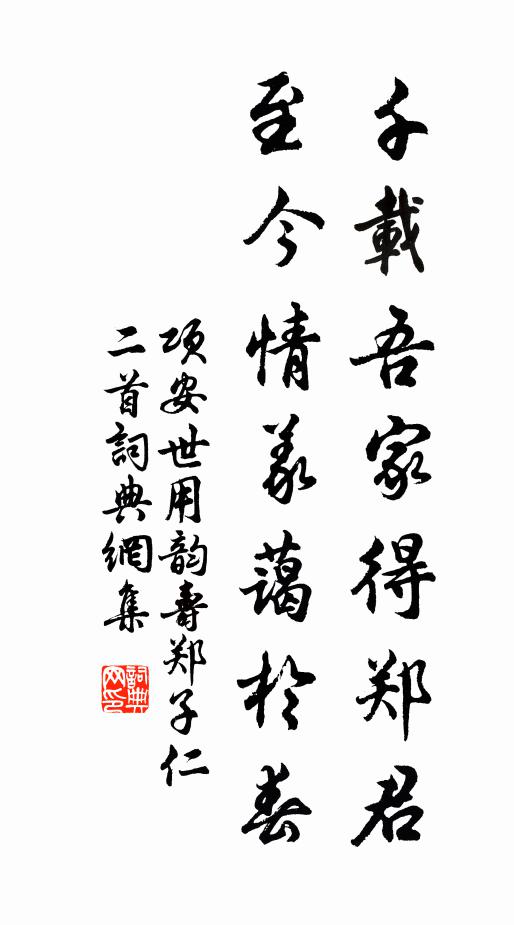 千載吾家得郑君
至今情義藹於春
项安世用韵壽郑子仁
二首詞典網集
詞典網印